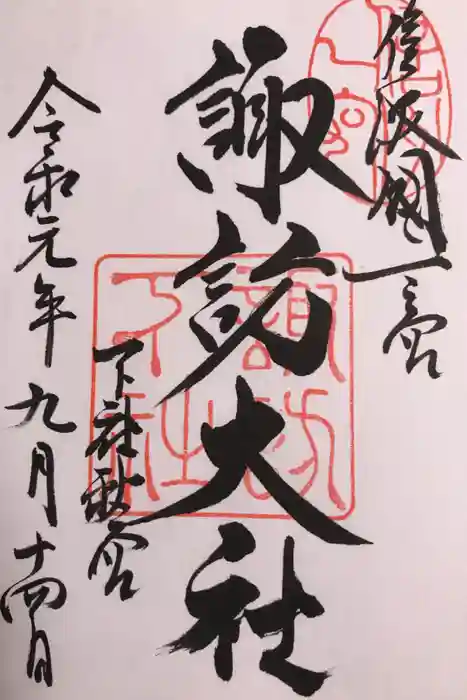 信濃國一宮
諏訪大社
下社秋宮
令和元年九月十四日
諏訪
下社